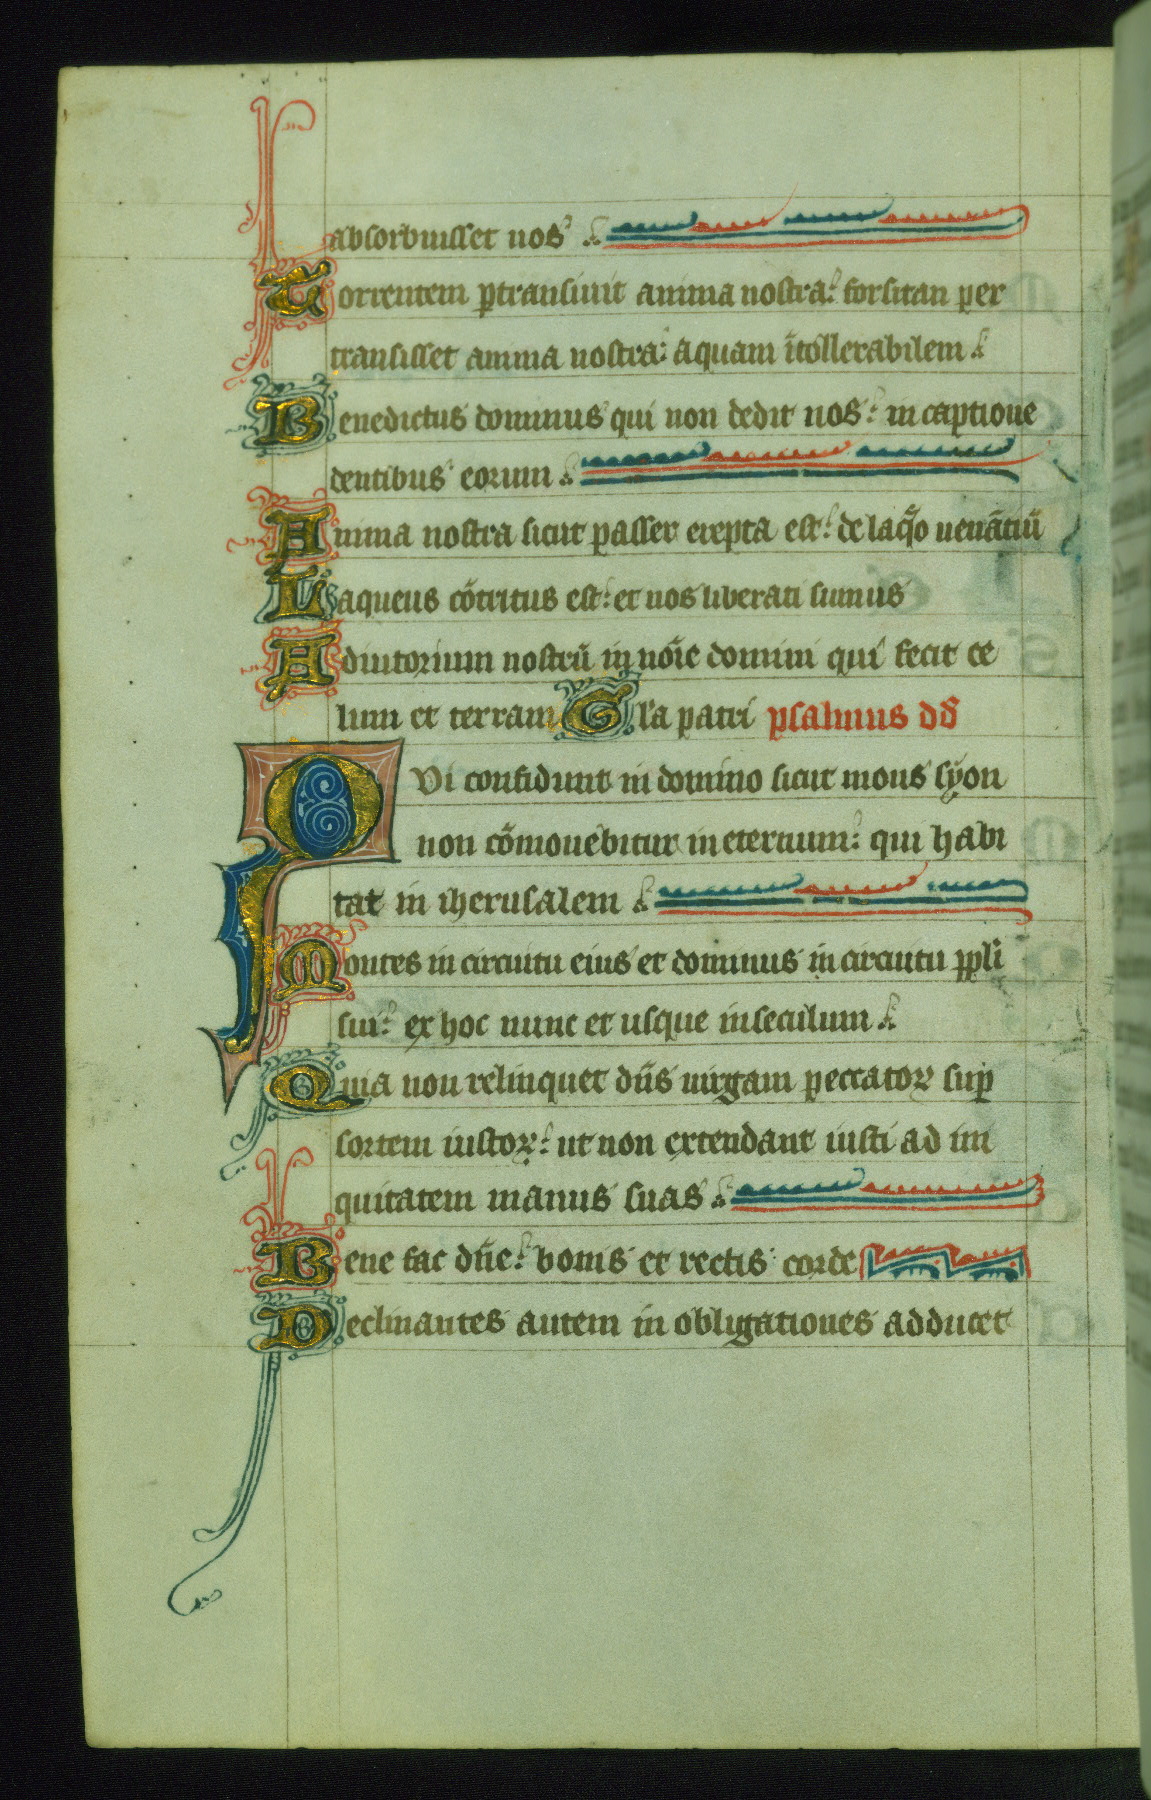 absorbuisset nos
Torrentem ptransiuit anima nostra: forsitan per
transisset anima nostra: aquam ītollerabilem
Benedictus dominus qui non dedit nos: in captione
dentibus eorum
Anima nostra sicut passer erepta est: de laq̄o uenātiū
Laqueus cōtritus est: et nos liberati sumus
Adiutorium nostrū in nōīe domini qui fecit ce
lum et terram Gl'a patri psalmus dd
QVi confidunt in domino sicut mons syon
non cōmouebitur in eternum: qui habi
tat in iherusalem
Montes in circuitu eius et dominus in circuitu ppl'i
sui: ex hoc nunc et usque in seculum
Quia non relinquet dn̄s uirgam peccator sup
sortem iustor: ut non extendant iusti ad ini
quitatem manus suas
Bene fac dn̄e: bonis et rectis corde
Declinantes autem in obligationes adducet